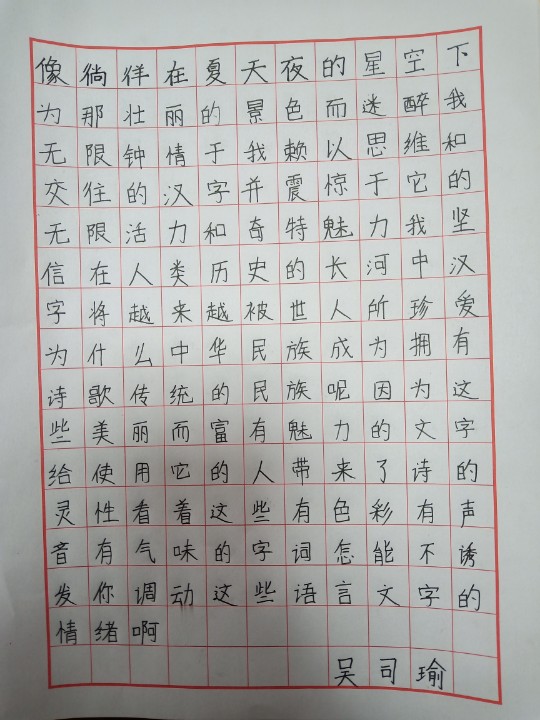 像徜徉在夏天夜的星空下
为那壮丽的景色而迷醉我
无限钟情于我赖以思维和
交往的汉字并震惊于它的
无限活力和奇特魅力我坚
信在人类历史的长河中汉
字将越来越被世人所珍爱
为什么中华民族成为拥有
诗歌传统的民族呢因为这
些美丽而富有魅力的文字
给使用它的人带来了诗的
灵性看着这些有色彩有声
音有气味的字词怎能不诱
发你调动这些语言文字的
情绪啊
吴司瑜